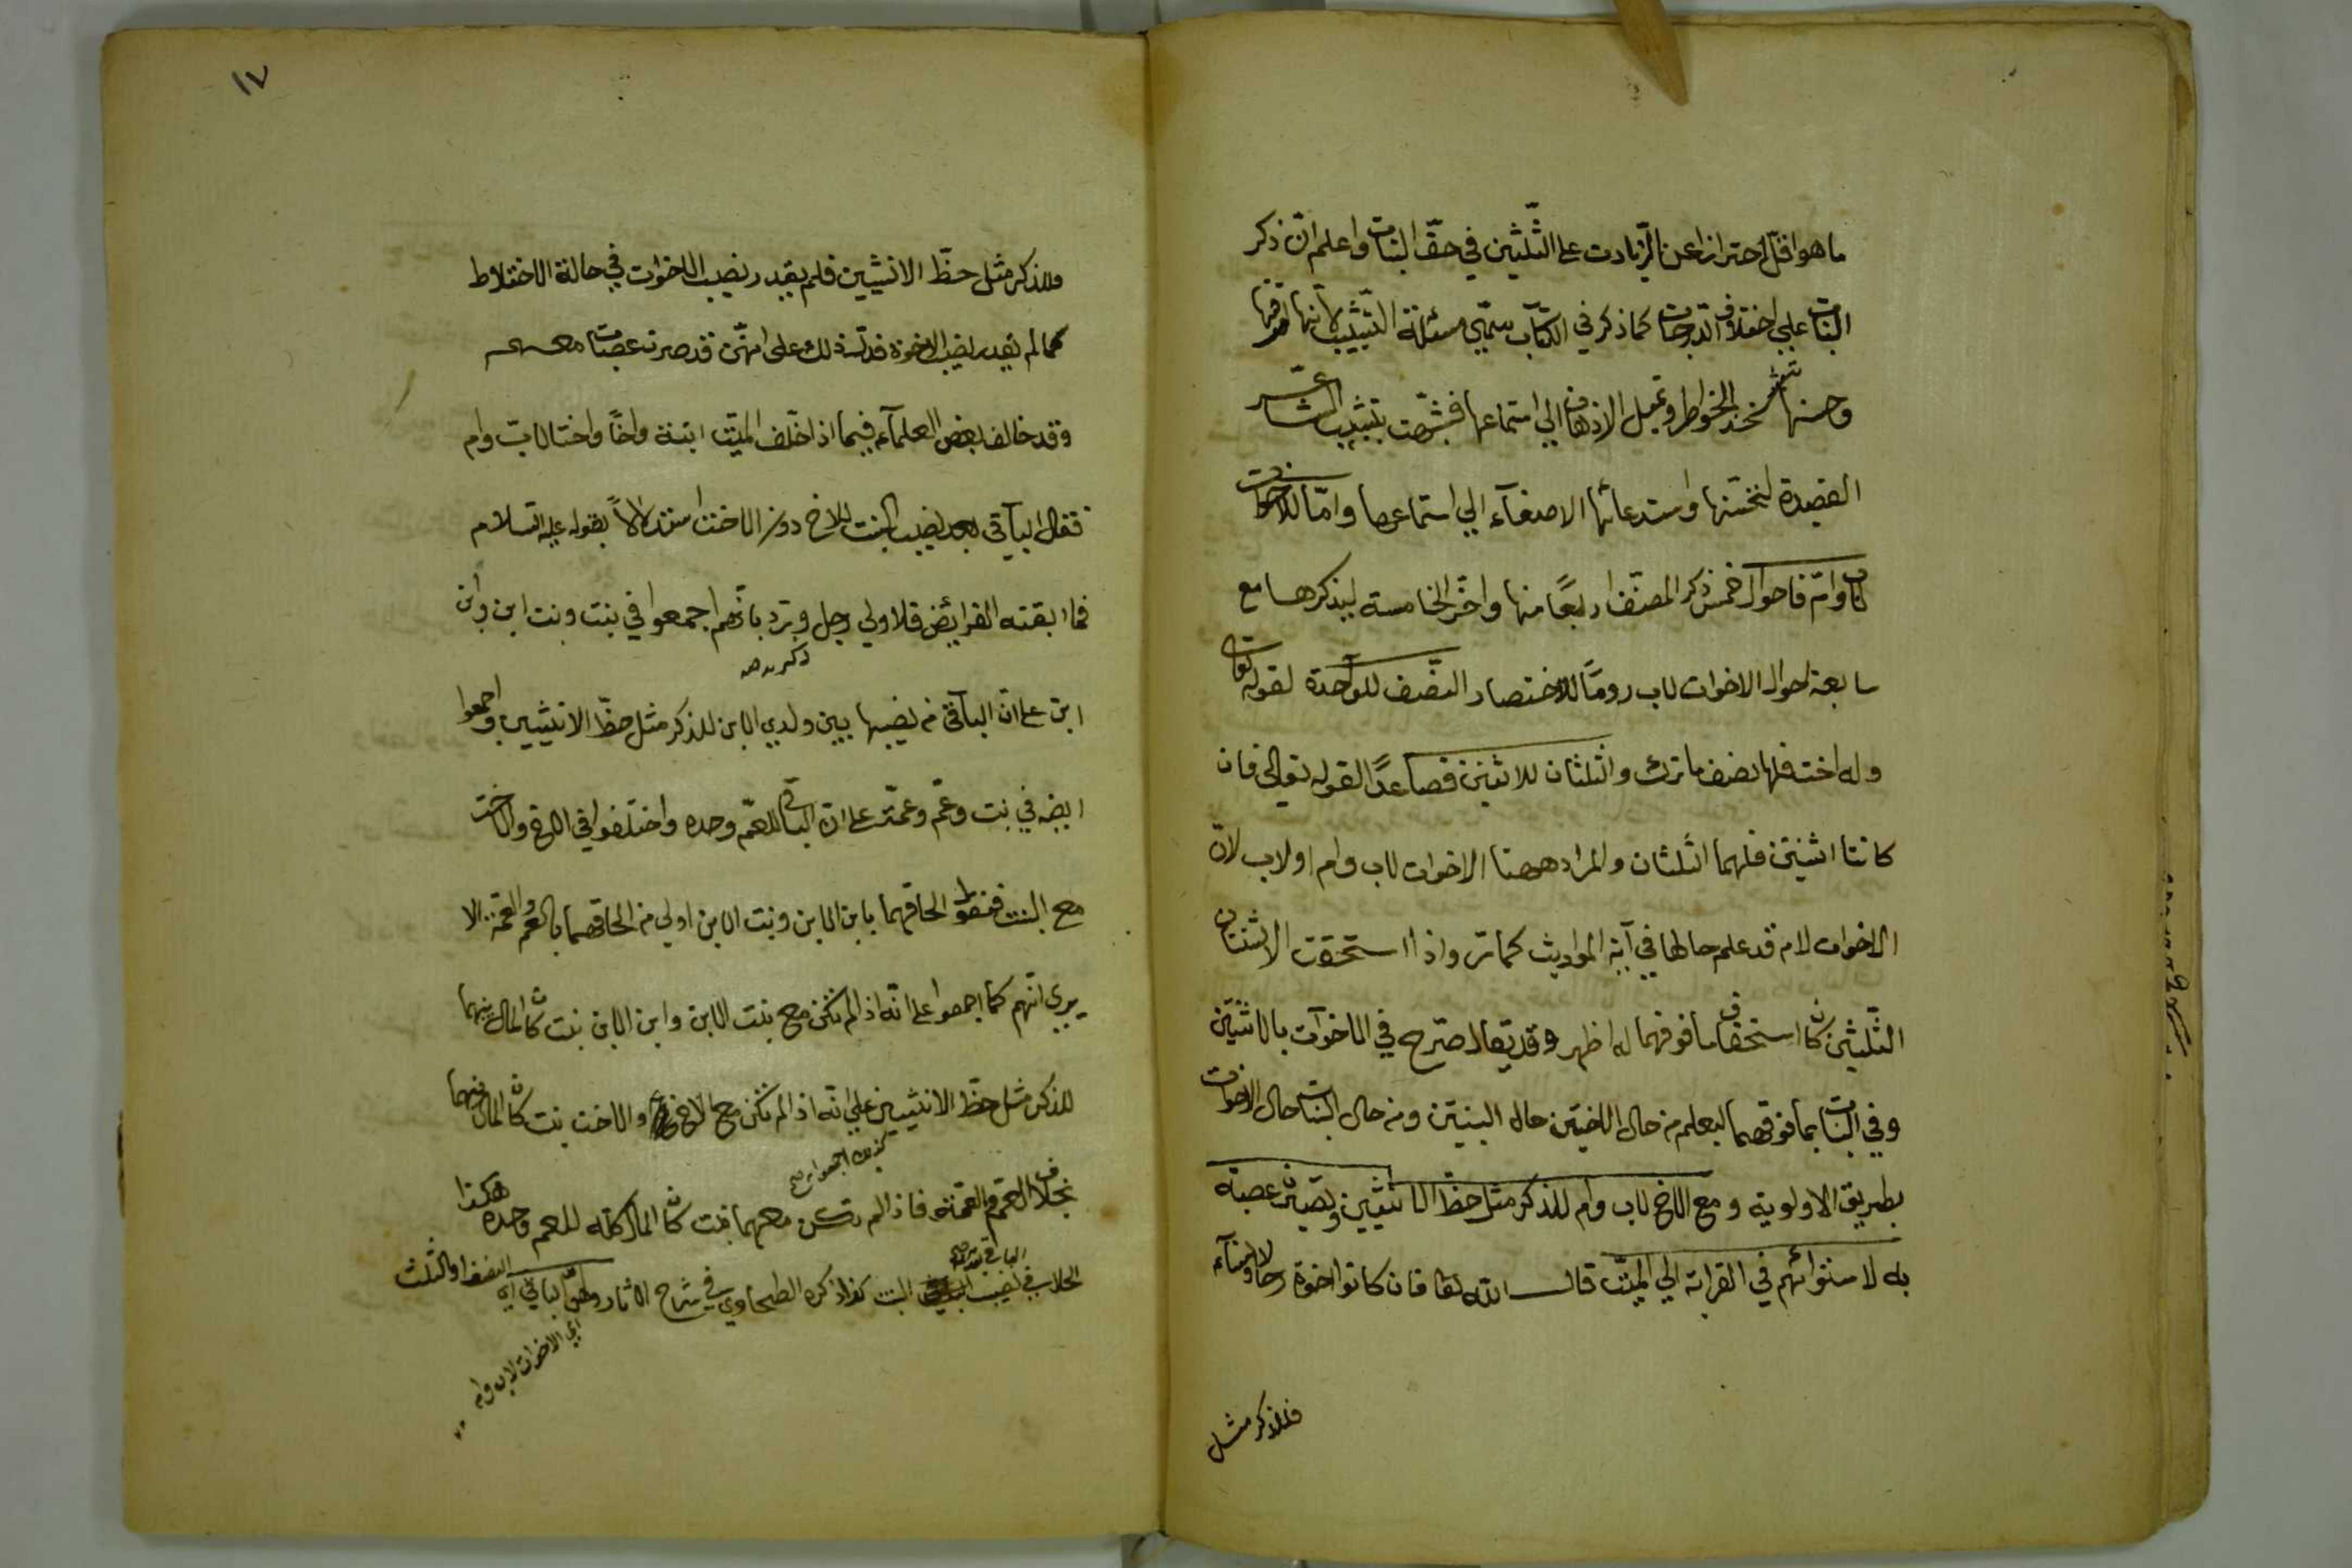 ما هو اقل احترازا عن الزيادت على الثّلثين في حقّ البنات واعلم انّ ذكر
البنات على اختلاف الدرجات كما ذكر في الكتاب سمّي مسئلة التشبيب لانها
وحسنها الخواطر وتميل الاذهان الي استماعها فشبّهت بتشبيب الشاعر
القصيدة لتحسّنها واستدعائها الاصغآء الي استماعها وامّا للاخوات
لاب وامّ فاحوال خمس ذكر المصنّف اربعًا منها واخّر الخامسة ليذكرها مع
سابعة احوال الاخوات لاب رومًا للاختصار النّصف للواحدة لقوله تعالى
وله اخت فلها نصف ما ترك والثلثان للاثنتين فصاعدًا لقوله تعالى فان
كانتا اثنتين فلهما الثلثان والمراد ههنا الاخوات لاب وام او لاب لانّ
الاخوات لام قد علم حالها في آية المواريث كما مرّ واذا استحقت الاثنتان
الثّلثين كان استحقاق ما فوقهما له اظهر وقد يقال صرّح في الاخوات بالاثنتين
وفي البنات بما فوقهما ليعلم من حال الاختين حال البنتين ومن حال البنات حال الاخوات
بطريق الاولوية ومع الاخ لاب وام للذكر مثل حظّ الانثيين ويصيّرن عصبة
به لاستوائهم في القرابة الي الميّت قال الله تعا فان كانوا اخوة رجالا ونسآء
فللذكر مثل
١٧
وللذكر مثل حظّ الانثيين فلم يقدر نصيب الاخوات في حالة الاختلاط
كما لم يقدر نصيب الاخوة فدلّ ذلك على انهّن قد صرن عصبات معهم
وقد خالف بعض العلمآء فيما اذا خلف الميّت ابنة واخًا واختا لاب وام
فقال الباقي بعد نصيب البنت للاخ دون الاخت استدلالاً بقوله عليه السلام
فما ابقته الفرايض فلاولي رجل ذكر ويرد بانهم اجمعوا في بنت وبنت ابن وابن
ابن على ان الباقي من نصيبها بين ولدي الابن للذكر مثل حظّ الانثيين واجمعوا
ايضه في بنت وعمّ وعمّة على انّ الباقي للعمّ وحده واختلفوا في الاخ والاخت
مع البنت فنقول الحاقهما بابن الابن وبنت الابن اولي من الحاقهما بالعم والعمة الا
يري انهم كما اجمعوا على انّه اذا لم تكن مع بنت الابن وابن الابن بنت كان المال بينهما
للذكر مثل حظّ الانثيين على انه اذا لم تكن مع الاخ والاخت بنت كان المال بينهما
كذلك اجمعوا
بخلاف العم والعمة فاذا لم تكن معهما بنت كان المال كله للعم وحده هكذا
الباقي بعد
في نصيب البنت كذا ذكره الطحاوي في شرح الاثار ولهنّ الباقي اي النصف او الثلث
اي الاخوات لاب وام